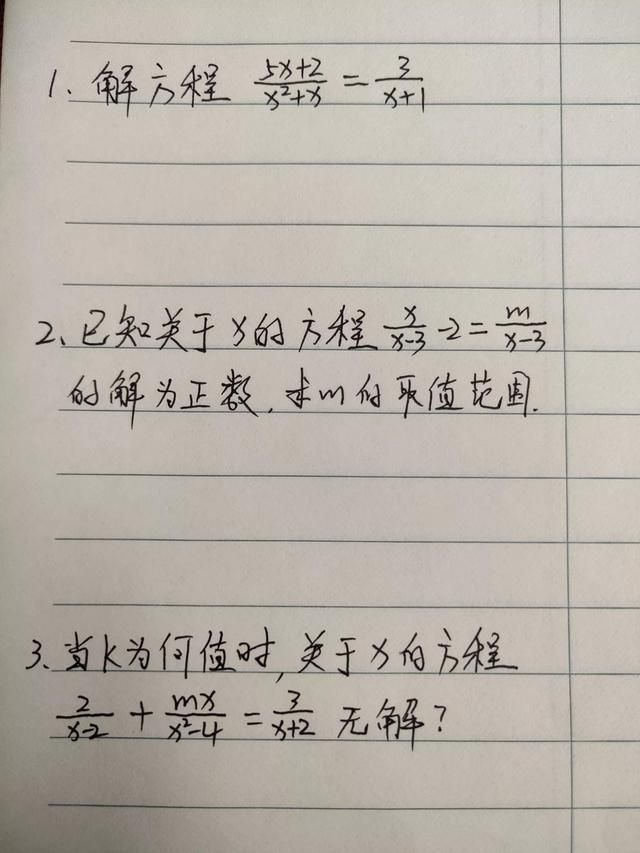 1、解方程 (5x+2)/(x²+x) = 3/(x+1)
2、已知关于x的方程 x/(x-3) -2 = m/(x-3)
的解为正数,求m的取值范围.
3、当k为何值时,关于x的方程
2/(x-2) + mx/(x²-4) = 3/(x+2) 无解?